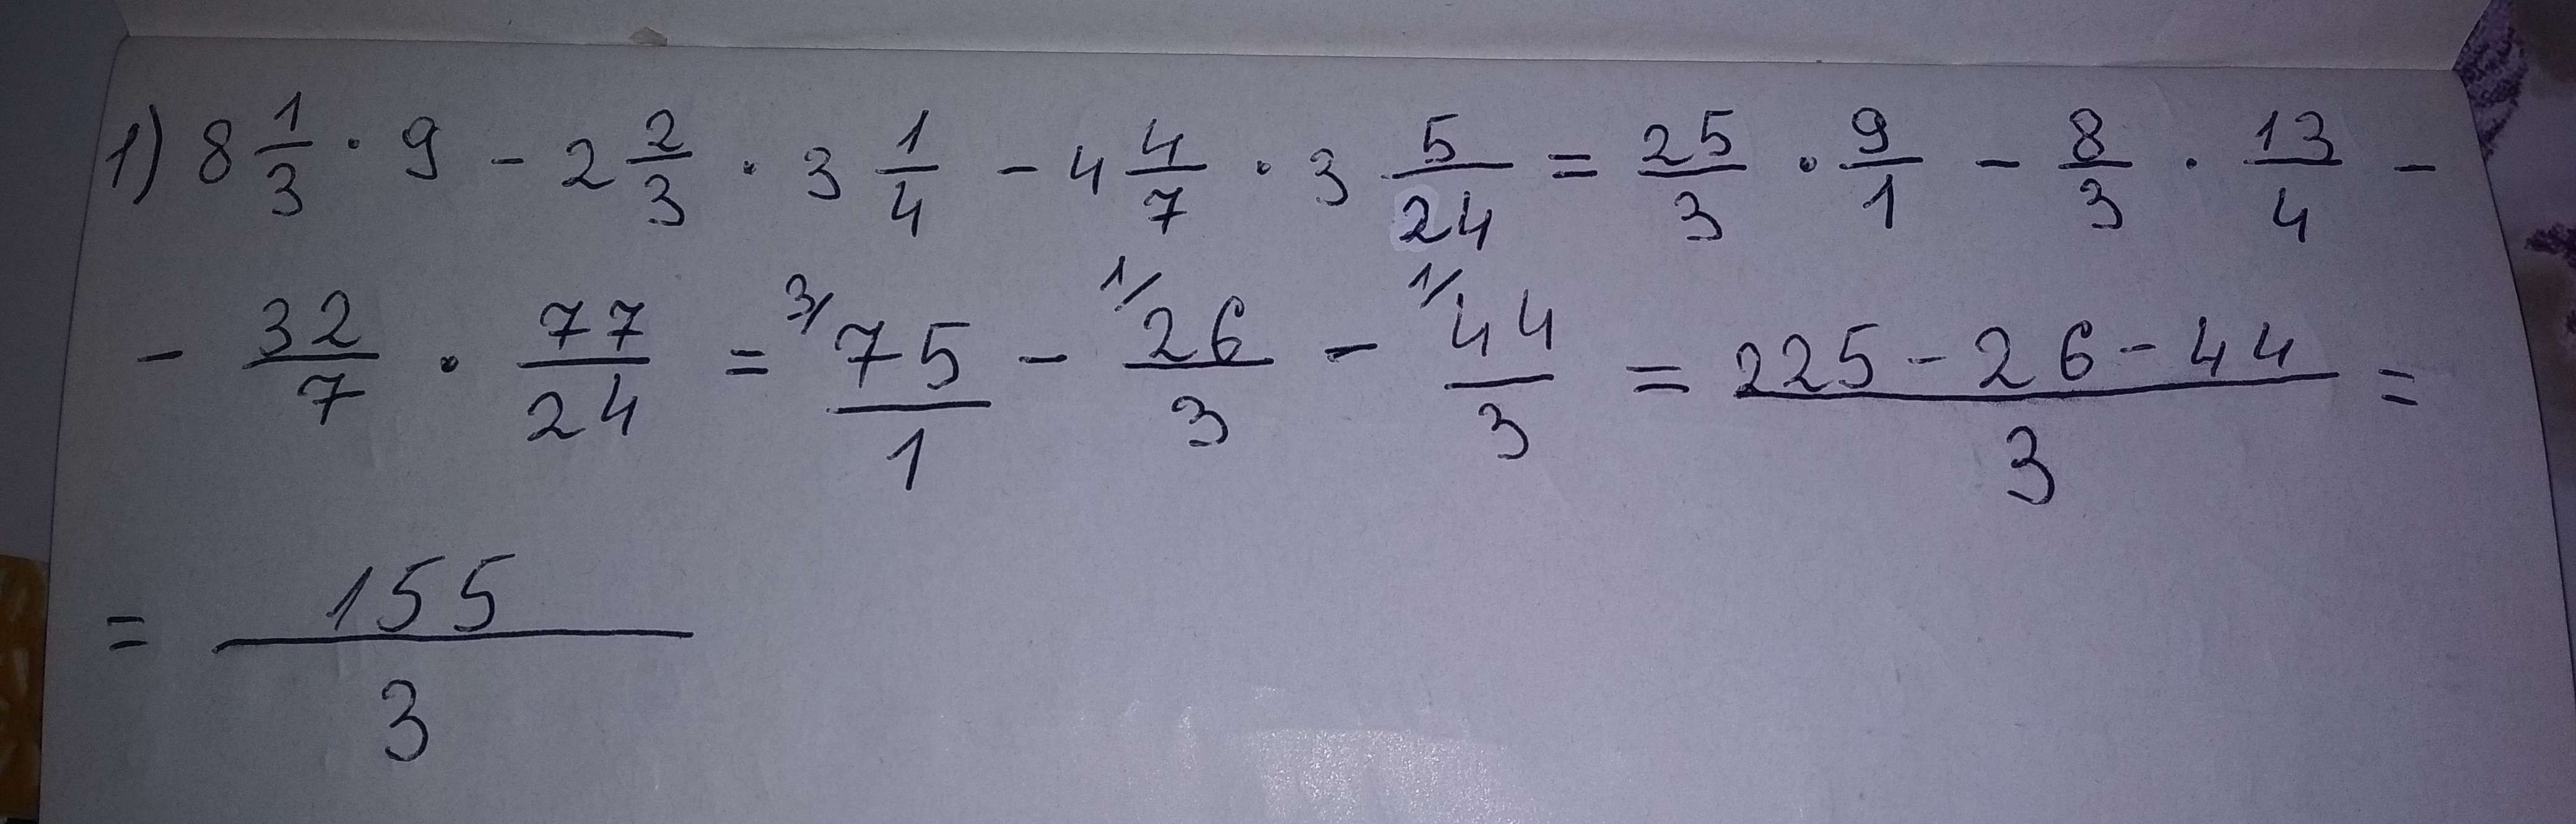 1) 8 1/3 · 9 - 2 2/3 · 3 1/4 - 4 4/7 · 3 5/24 = 25/3 · 9/1 - 8/3 · 13/4 -
- 32/7 · 77/24 = 3/ 75/1 - 1/ 26/3 - 1/ 44/3 = 225-26-44/3 =
= 155/3